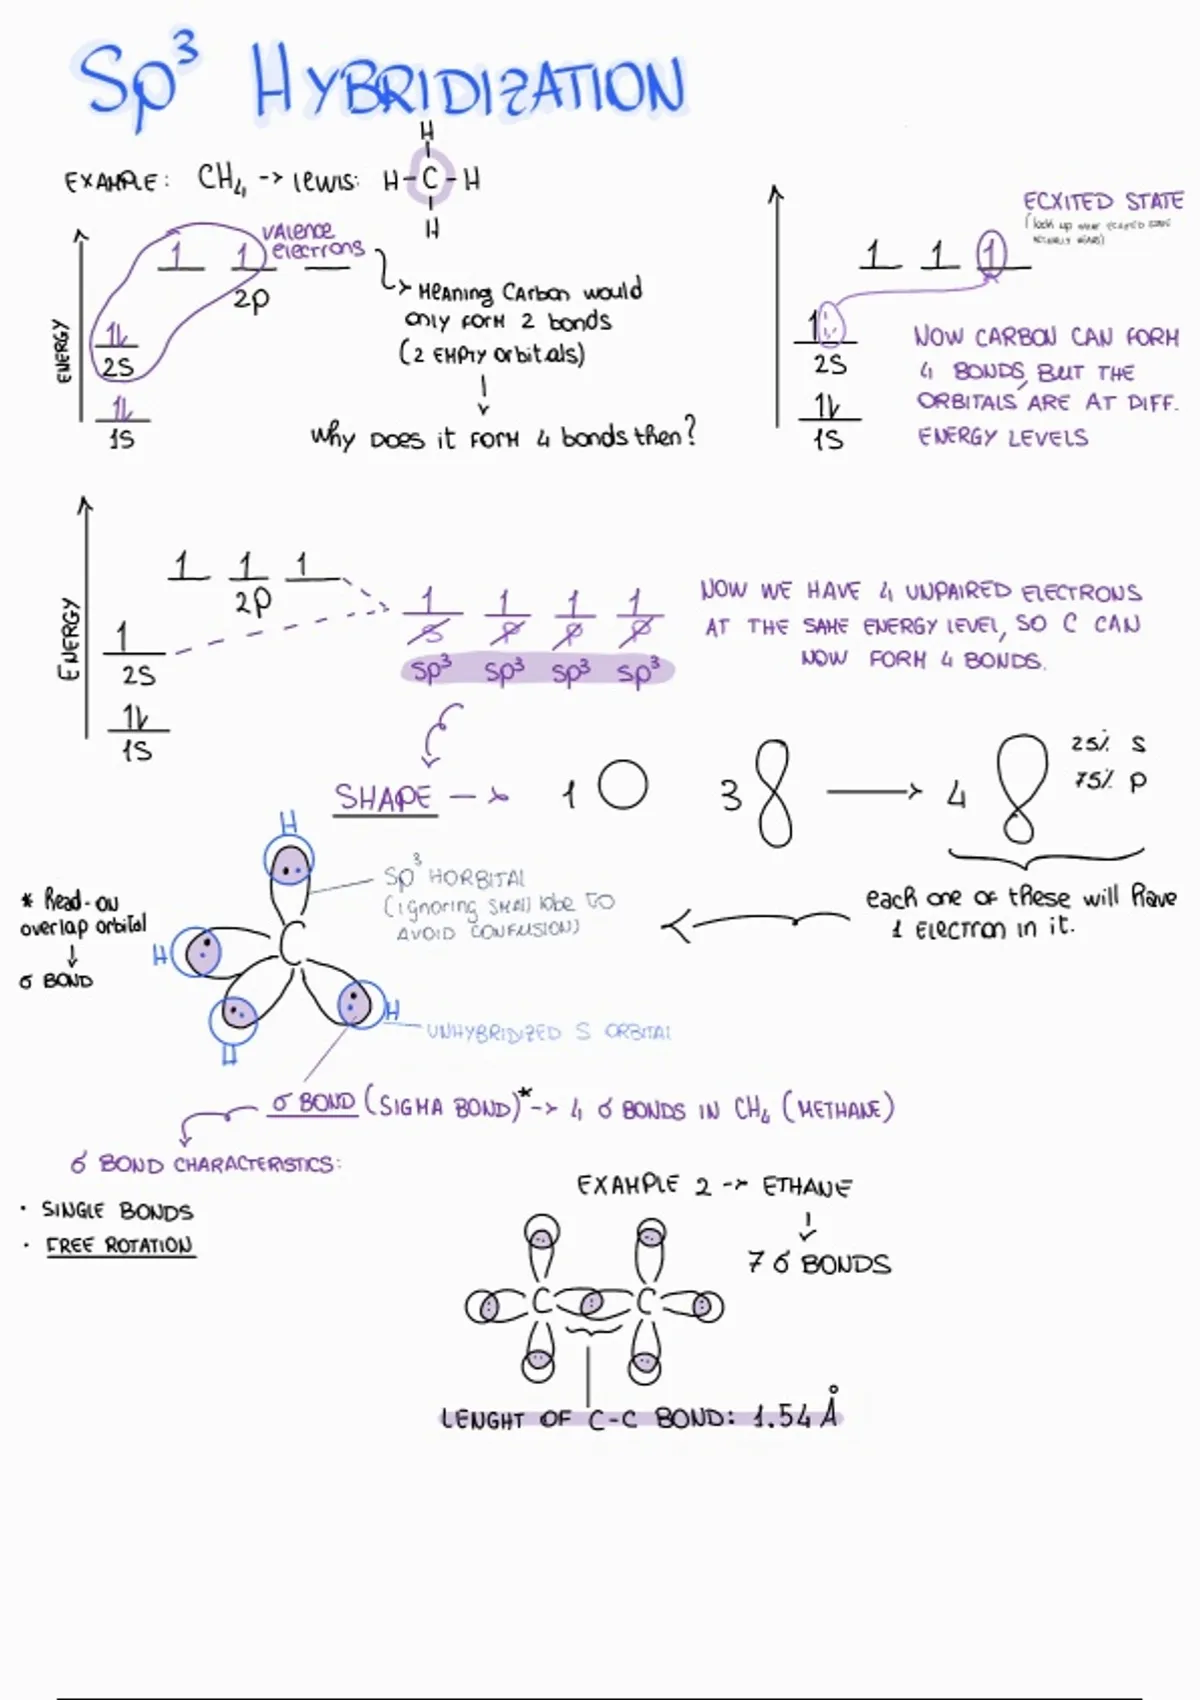 Sp³ HYBRIDIZATION
EXAMPLE: CH₄ -> lewis: H-C-H
H
H
VALENCE
electrons
1 1
2p
1L
2S
1L
1S
ENERGY
-> MEANING CARBON would
only FORM 2 bonds
(2 EMPTY orbitals)
Why DOES it FORM 4 bonds then?
ECXITED STATE
(look up
1 1 1
1
2S
1L
1S
NOW CARBON CAN FORM
4 BONDS, BUT THE
ORBITALS ARE AT DIFF.
ENERGY LEVELS
ENERGY
1 1 1
2p
1
2S
1L
1S
1 1 1 1
S P P P
Sp³ Sp³ Sp³ Sp³
NOW WE HAVE 4 UNPAIRED ELECTRONS
AT THE SAME ENERGY LEVEL, SO C CAN
NOW FORM 4 BONDS.
SHAPE -> 1 3 -> 4
25% S
75% P
each one of these will have
1 ELECTRON in it.
H
Sp³ HORBITAL
(ignoring SMALL lobe TO
AVOID CONFUSION)
* Head-ON
overlap orbital
↓
σ BOND
H
C
H
H
UNHYBRIDIZED S ORBITAL
σ BOND (SIGMA BOND)* -> 4 σ BONDS IN CH₄ (METHANE)
σ BOND CHARACTERISTICS:
· SINGLE BONDS
· FREE ROTATION
EXAMPLE 2 -> ETHANE
↓
7 σ BONDS
C C
LENGHT OF C-C BOND: 1.54 Å